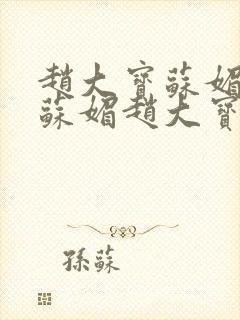 趙大寶蘇媚
蘇媚趙大寶
孫蘇